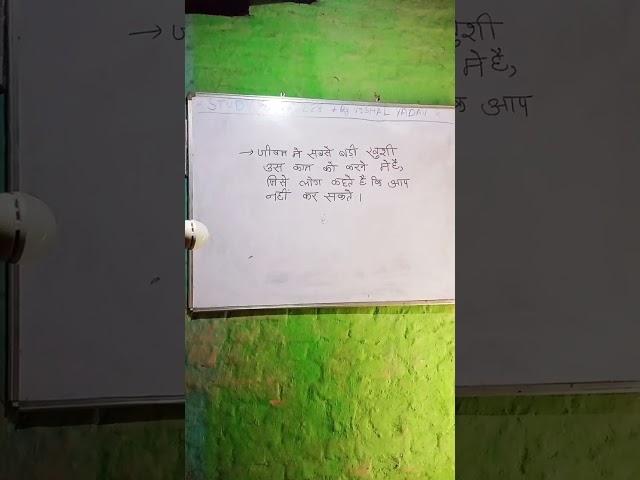 STUD VISHAL YADAV
→ जीवन मे सबसे बडी खुशी
उस काम को करने मे है,
जिसे लोग कहते है कि आप
नही कर सकते।